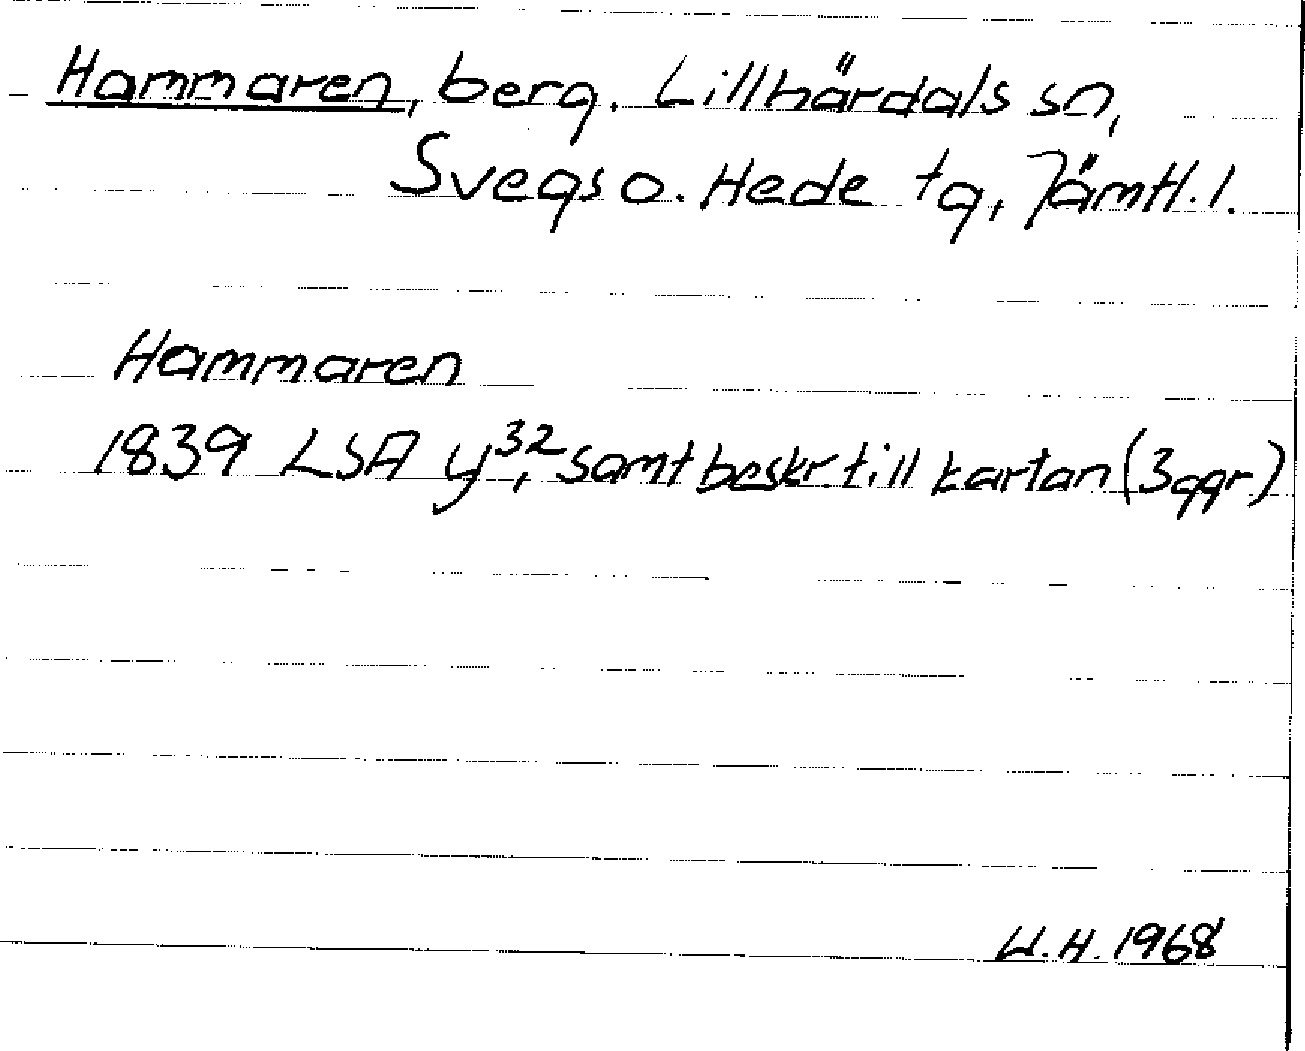 Hammaren, berg. Lillhärdals sn,
Svegs o. Hede tg, Jämtl. l.
Hammaren
1839 LSA y³², samt beskr. till kartan (3 ggr.)
U.H. 1968